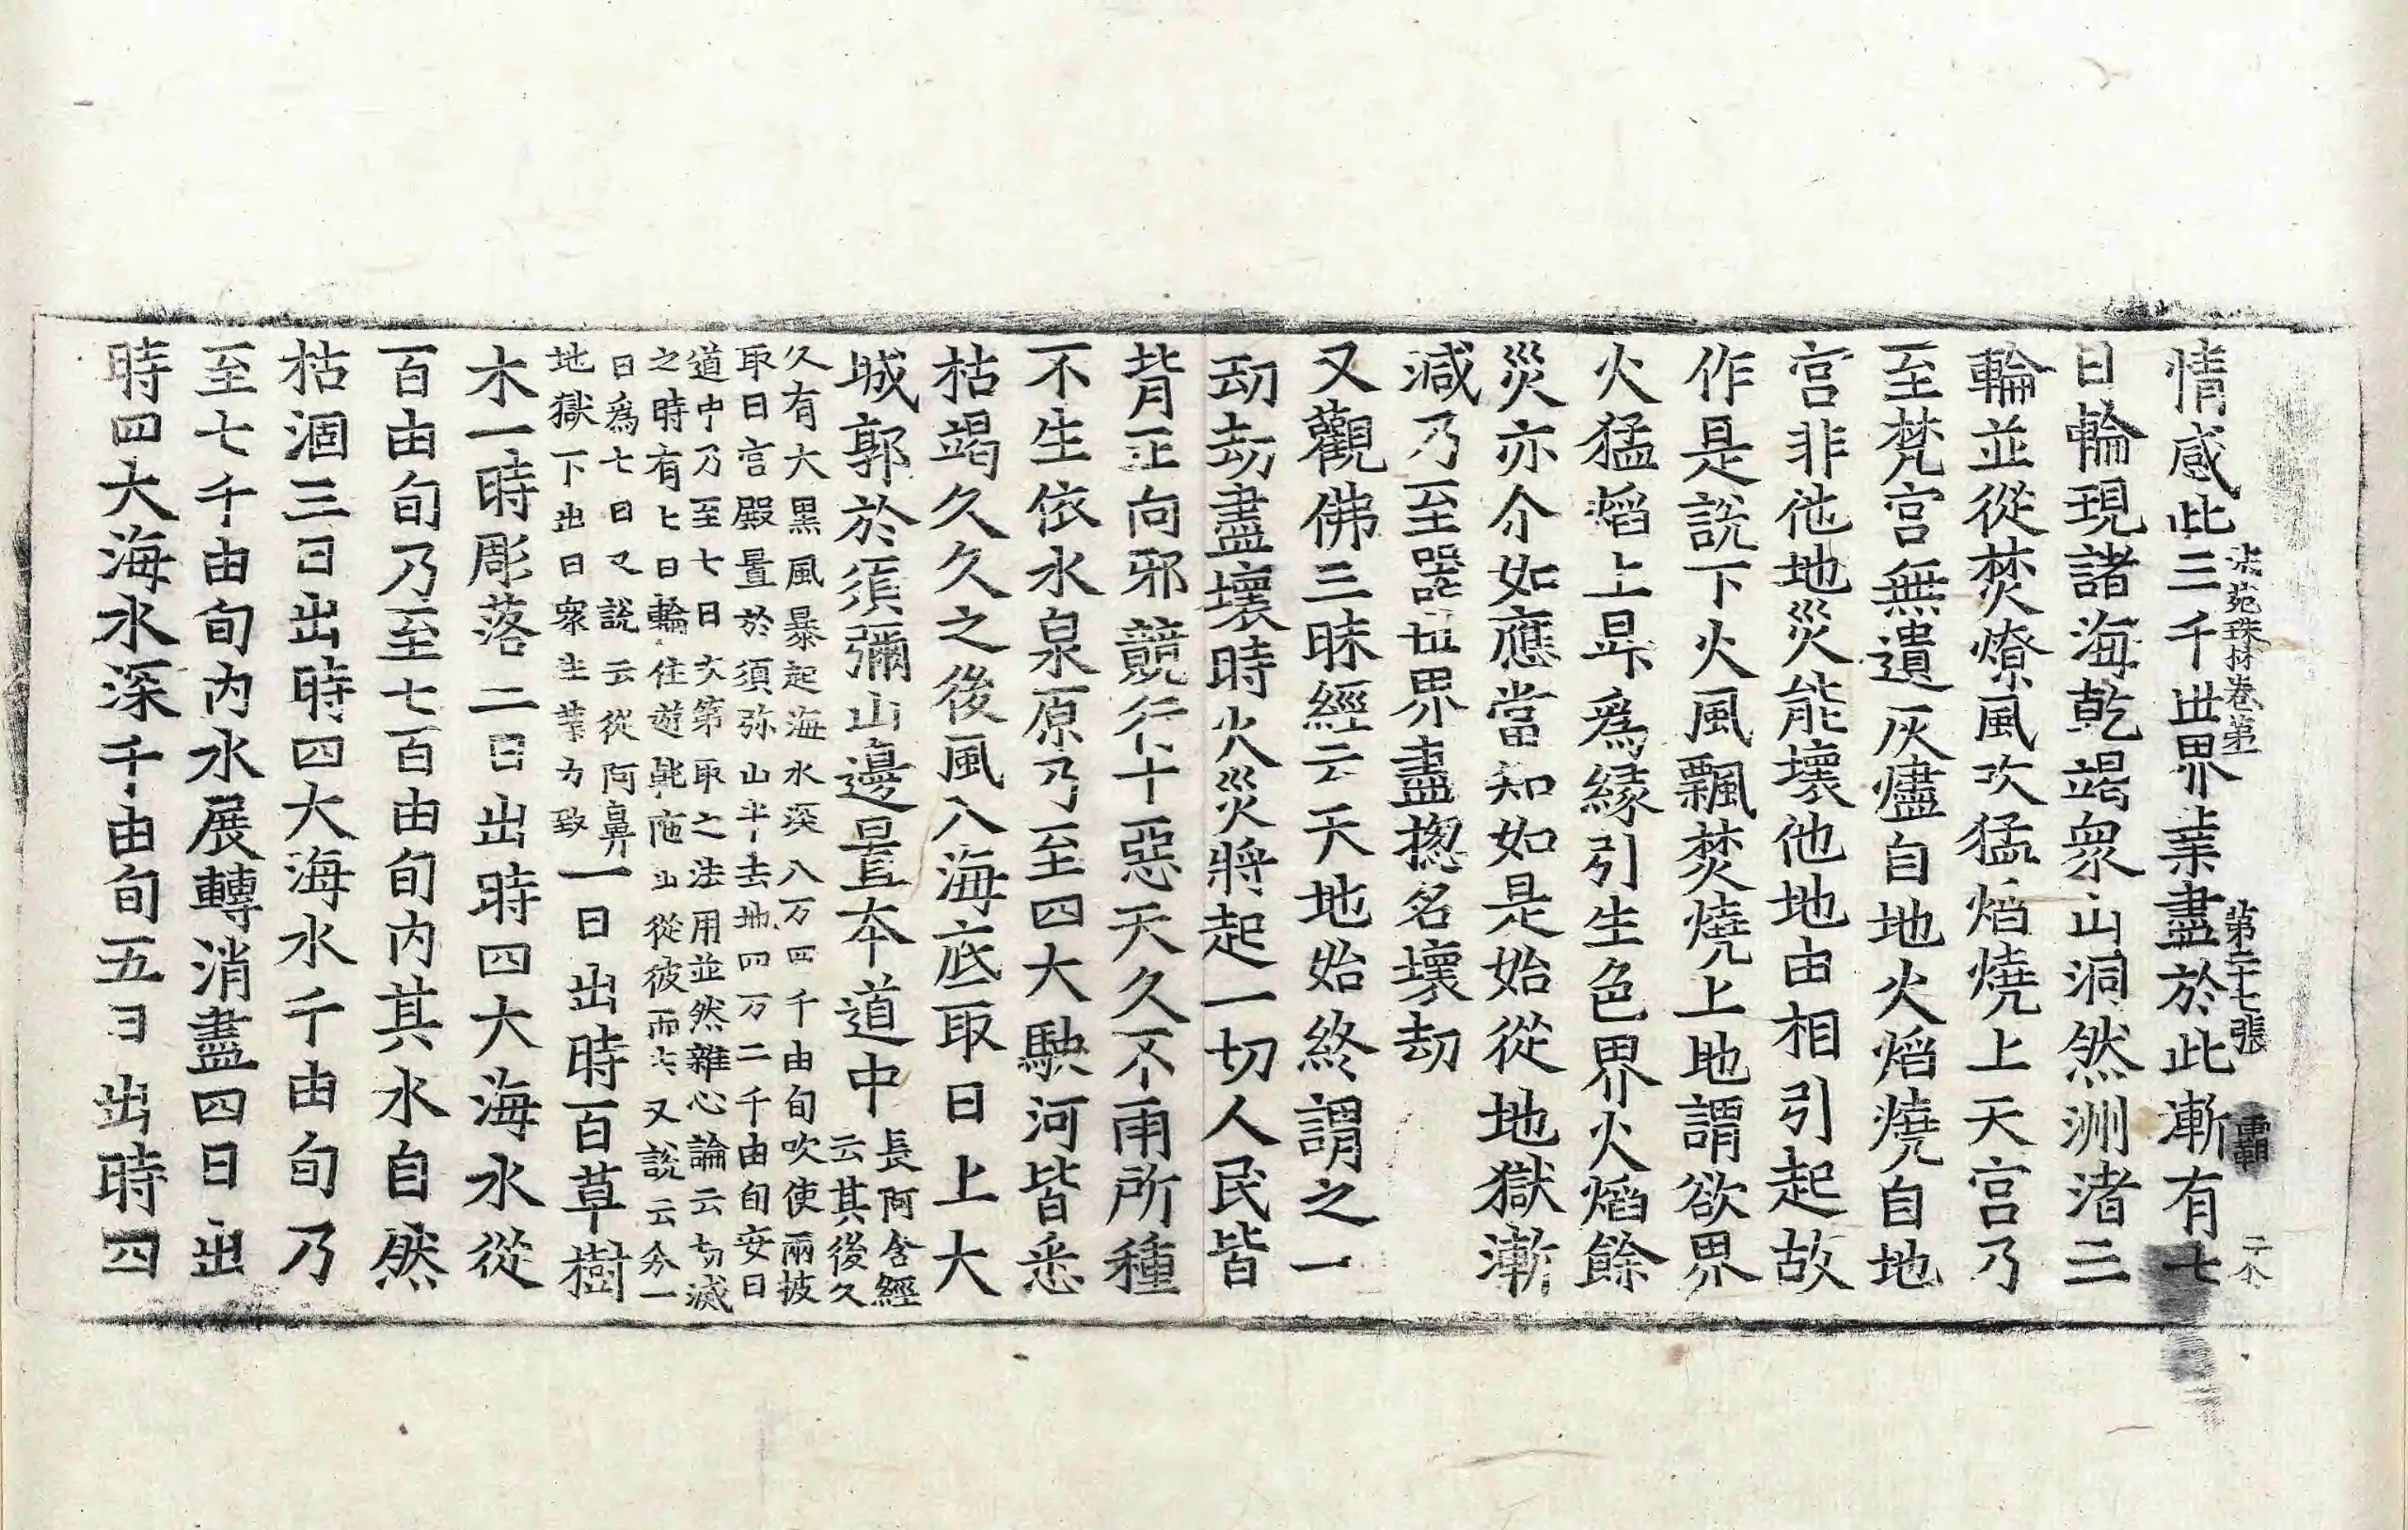 法苑珠林卷第一 第二十七張 覇
情感此三千世界業盡於此漸有七
日輪現諸海乾竭衆山洞然洲渚三
輪並從焚燎風吹猛焰燒上天宮乃
至梵宮無遺灰燼自地火焰燒自地
宮非他地災能壞他地由相引起故
作是說下火風飄焚燒上地謂欲界
火猛焰上昇爲緣引生色界火焰餘
災亦尒如應當知如是始從地獄漸
減乃至器世界盡揔名壞劫
又觀佛三昧經云天地始終謂之一
劫劫盡壞時火災將起一切人民皆
背正向邪競行十惡天久不雨所種
不生依水泉原乃至四大駃河皆悉
枯竭久久之後風入海底取日上大
城郭於須彌山邊置本道中長阿含經
云其後久
久有大黑風暴起海水深八万四千由旬吹使兩披
取日宮殿置於須弥山半去地四万二千由旬安日
道中乃至七日次第取之法用並然雜心論云劫減
之時有七日輪住遊乾陁山從彼而出又說云分一
日爲七日又說云從阿鼻
地獄下出日衆生業力致一日出時百草樹
木一時彫落二日出時四大海水從
百由旬乃至七百由旬內其水自然
枯涸三日出時四大海水千由旬乃
至七千由旬內水展轉消盡四日出
時四大海水深千由旬五日出時四